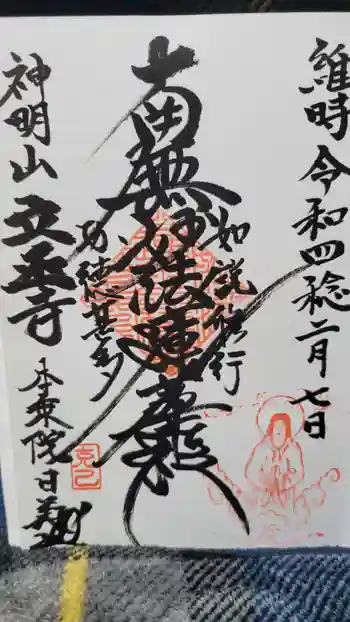 維時令和四稔二月七日
如説修行
南無妙法蓮華経
功徳甚多
神明山立正寺
本乗院日